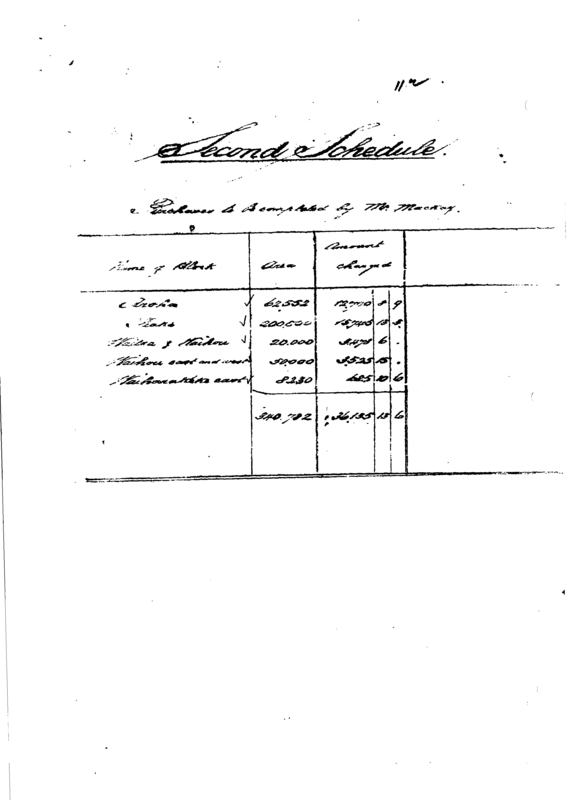 112
Second Schedule.
Purchases to be completed by Mr. Mackay.
Name of Block Area Amount charged
Aroha 62,552 12,700 8 9
200,000 15,745 13 3
Waitoa & Waihou 20,000 3,478 6 .
Waihou east and west 50,000 3,525 15 .
east 8230 685 10 6
340,782 36,135 13 6